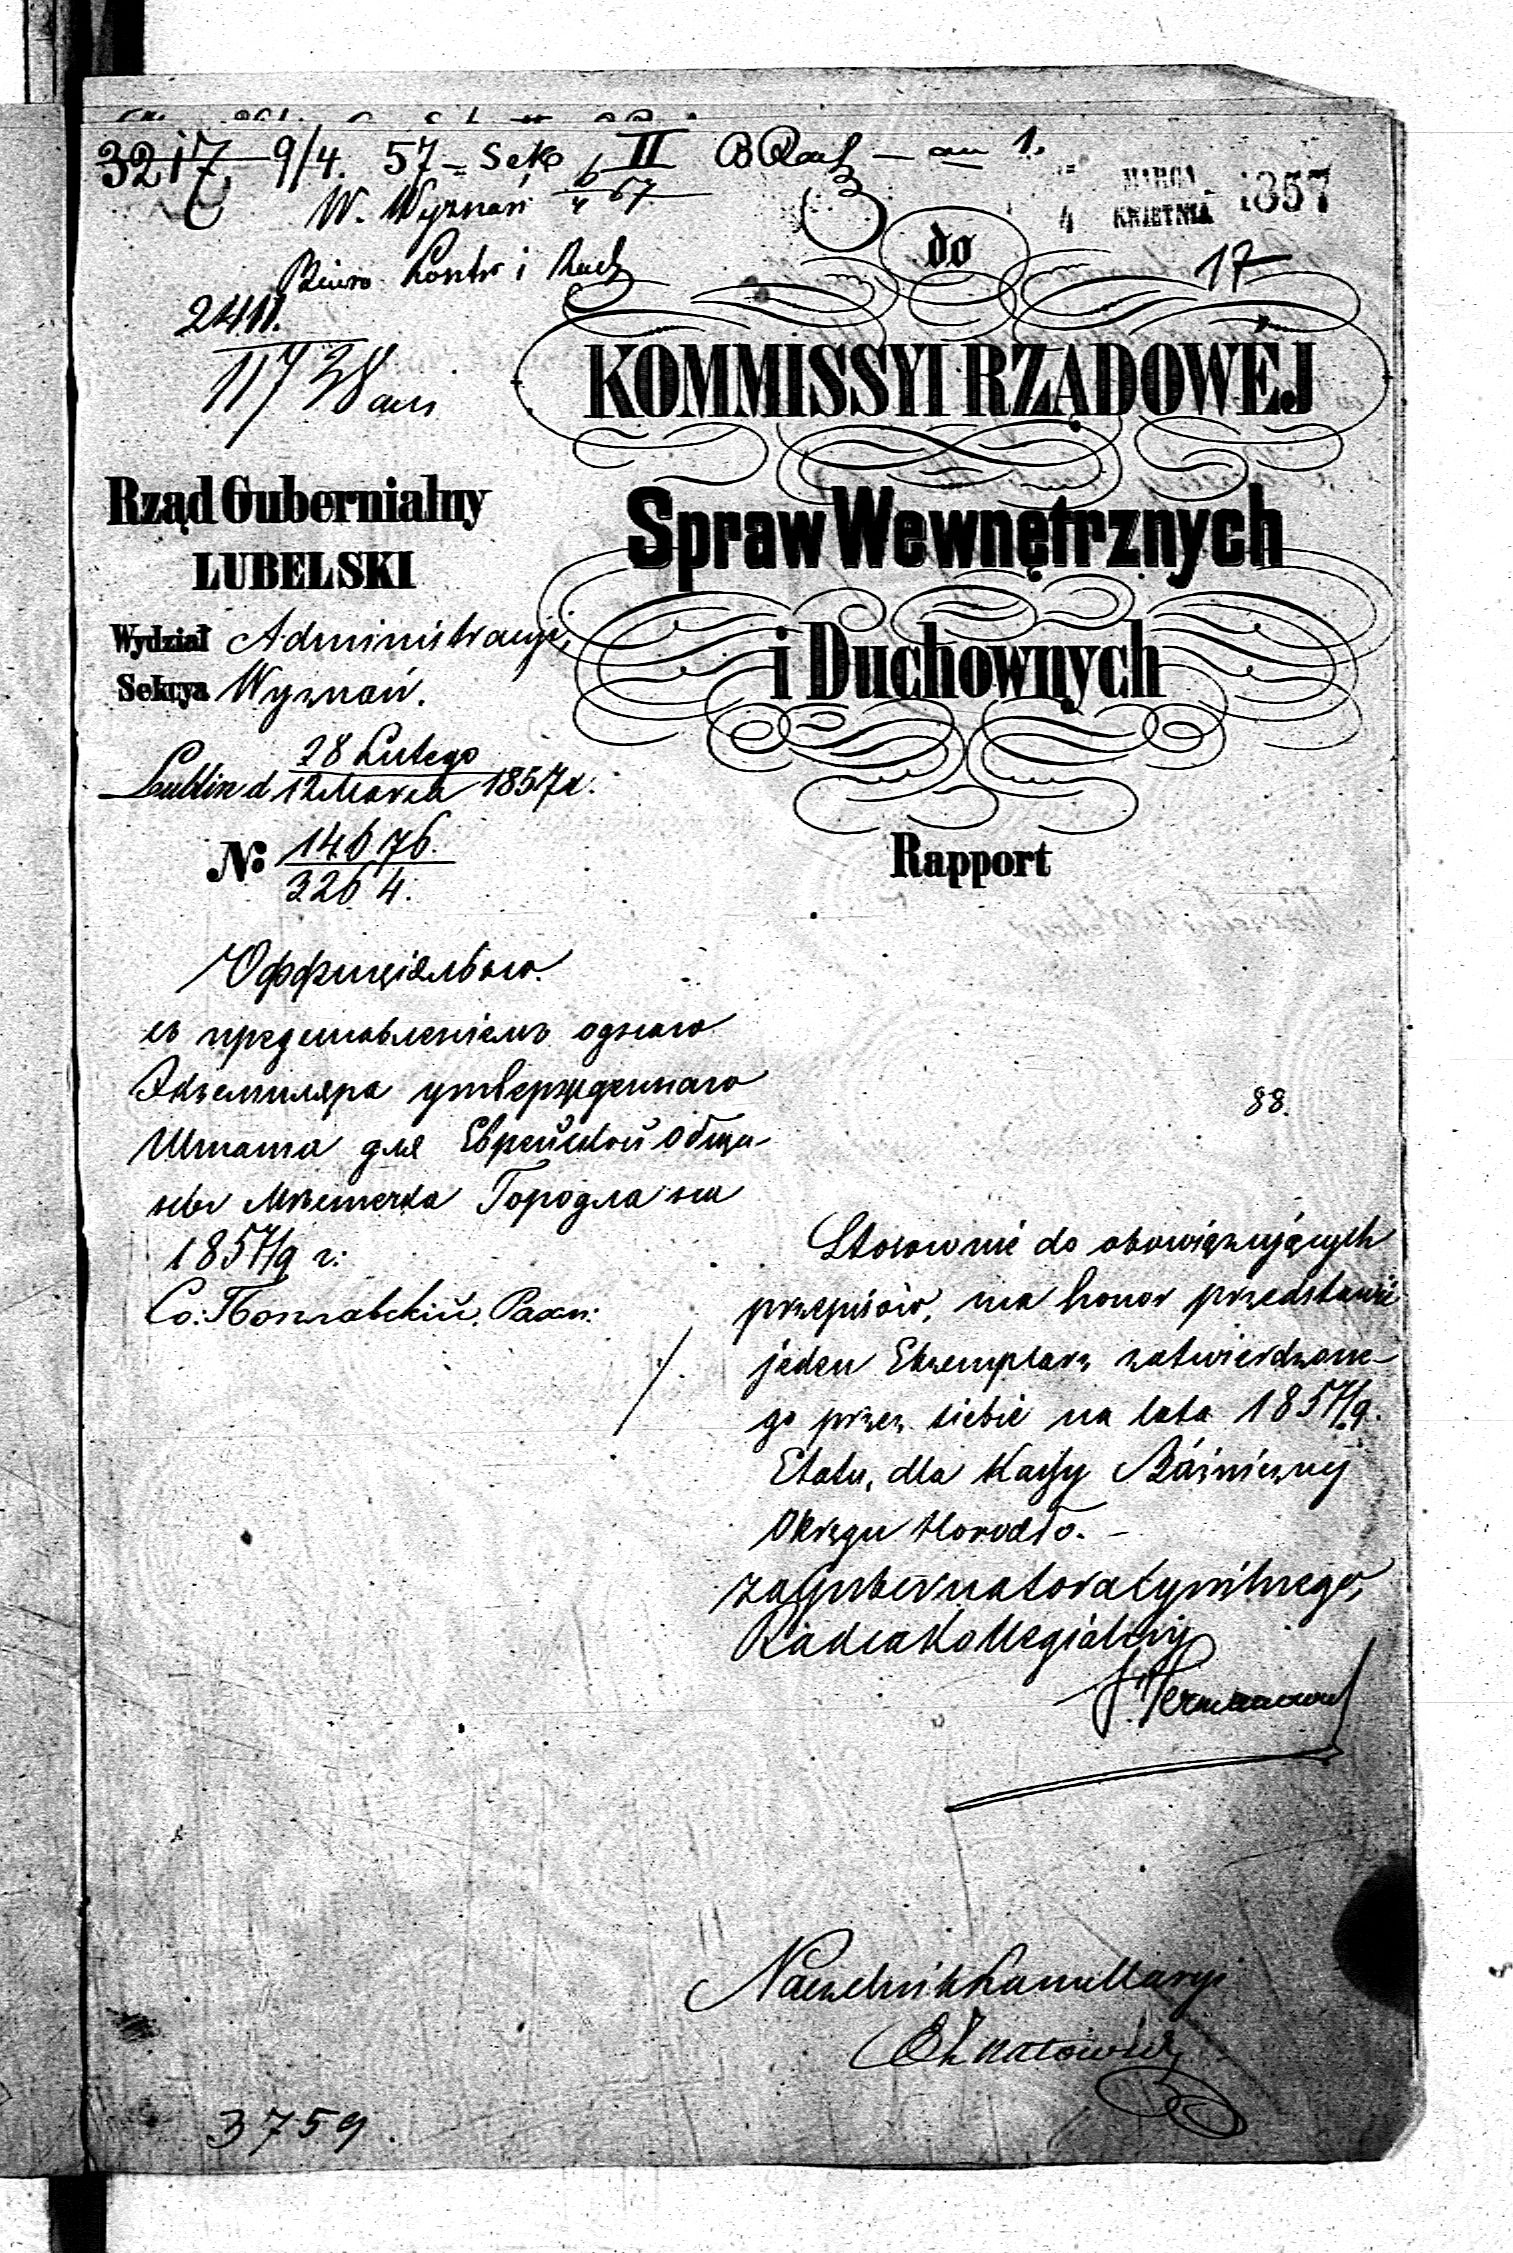 3217. 9/4. 57 - Sek II B Rach - an 1.
W. Wyznań 6/4 57
MARCA
4 KWIETNIA 1857
do
17
Biuro Kontr i Rach
2411.
11738 ani
KOMMISSYI RZĄDOWÉJ
Rząd Gubernialny
LUBELSKI
Spraw Wewnętrznych
i Duchownych
Wydział Administracyi,
Sekcya Wyznań.
Lublin d 28 Lutego
12 Marca 1857 r.
№ 14676.
3264.
Rapport
Оффиціяльно
съ представленіемъ одного
Экземпляра утвержденнаго
88.
Штата для Еврейской обща-
ны Мѣстечка Городла на
1857/9 г:
Stosownie do obowiązujących
przepisów, ma honor przedstawić
jeden Exemplarz zatwierdzone-
go przez siebie na lata 1857/9.
Etatu, dla Kassy Bóżniczney
Okręgu Horodło. -
za Gubernatora Cywilnego,
Radca Kollegialny
Naczelnik Kancellaryi
3759.